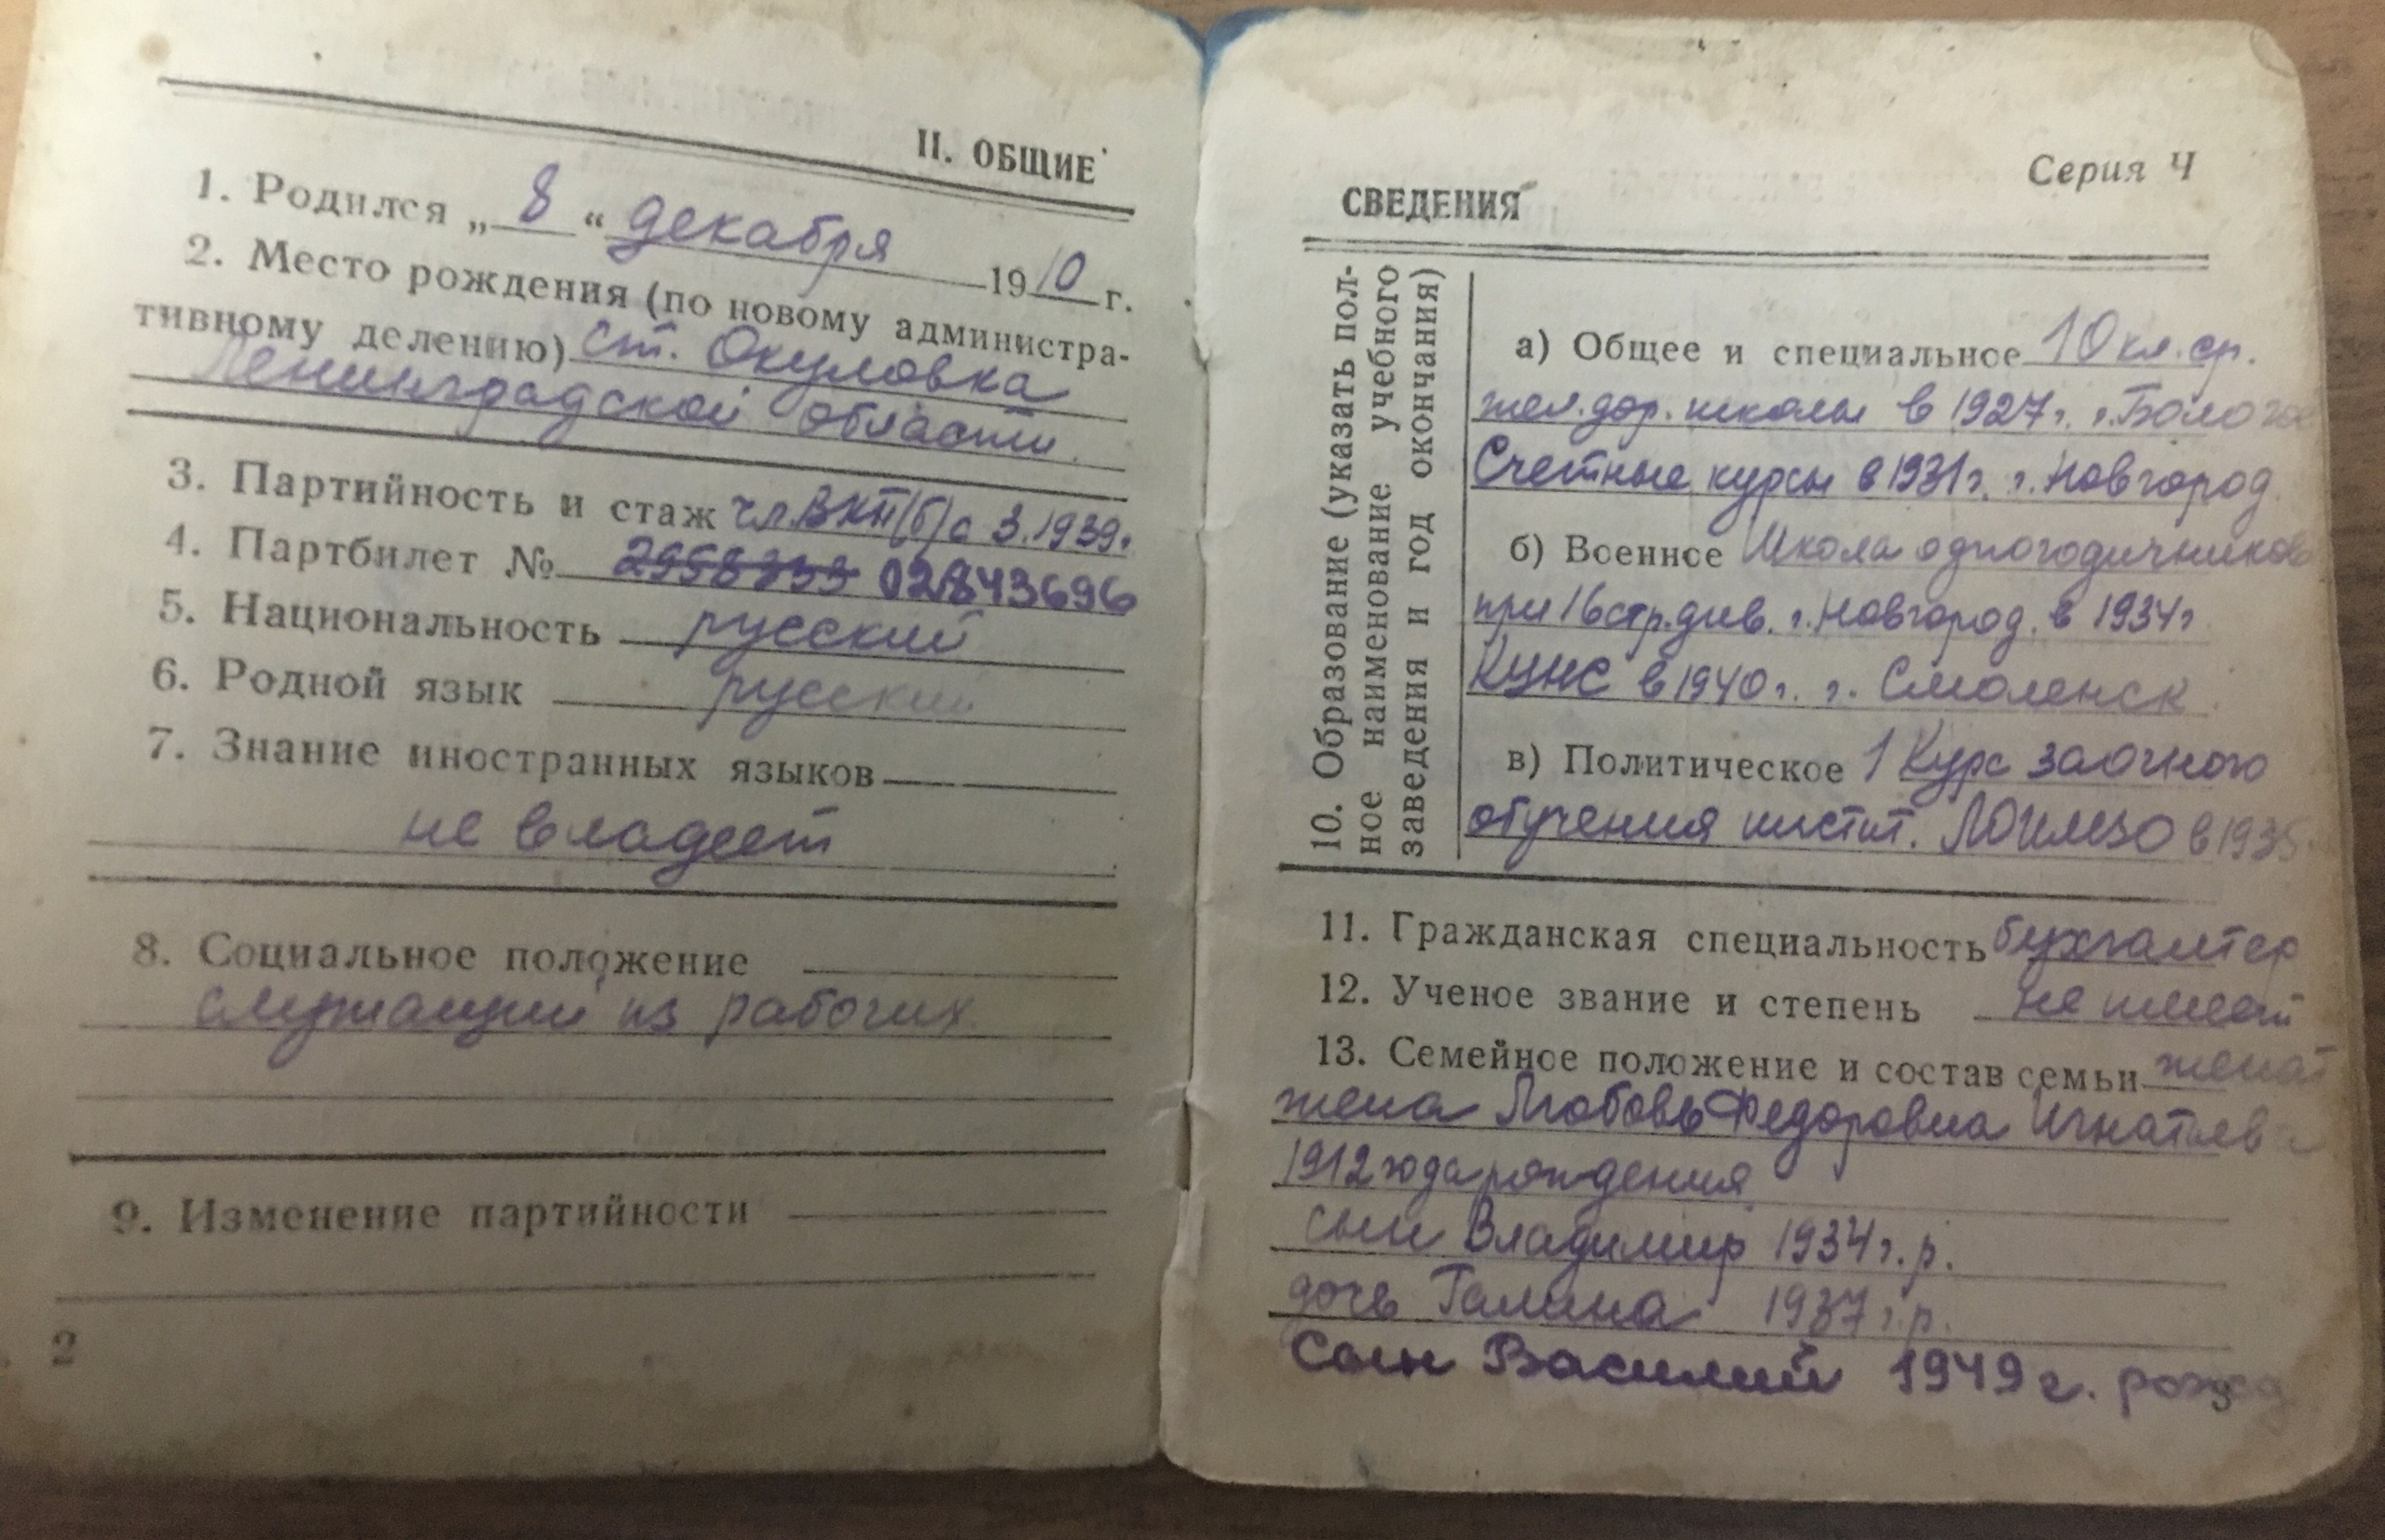 II. ОБЩИЕ
1. Родился „ 8 “ декабря 1910 г.
2. Место рождения (по новому администра-
тивному делению) ст. Окуловка
Ленинградской области.
3. Партийность и стаж чл. ВКП(б) с 3.1939г.
4. Партбилет № 02843696
5. Национальность русский
6. Родной язык русский
7. Знание иностранных языков
не владеет
8. Социальное положение
служащий из рабочих
9. Изменение партийности
2
Серия Ч
СВЕДЕНИЯ
10. Образование (указать пол-
ное наименование учебного
заведения и год окончания)
а) Общее и специальное 10 кл. ср.
жел. дор. школы в 1927 г. г. Бологое
Счетные курсы в 1931 г. г. Новгород.
б) Военное Школа одногодичников
при 16 стр. див. г. Новгород. в 1934 г
КУНС в 1940 г. г. Смоленск
в) Политическое 1 Курс заочного
обучения инстит. в 1935
11. Гражданская специальность бухгалтер
12. Ученое звание и степень не имеет
13. Семейное положение и состав семьи женат
жена Любовь Федоровна Игнатьева
1912 года рождения
сын Владимир 1934 г. р.
дочь Галина 1937 г. р.
Сын Василий 1949 г. рожд